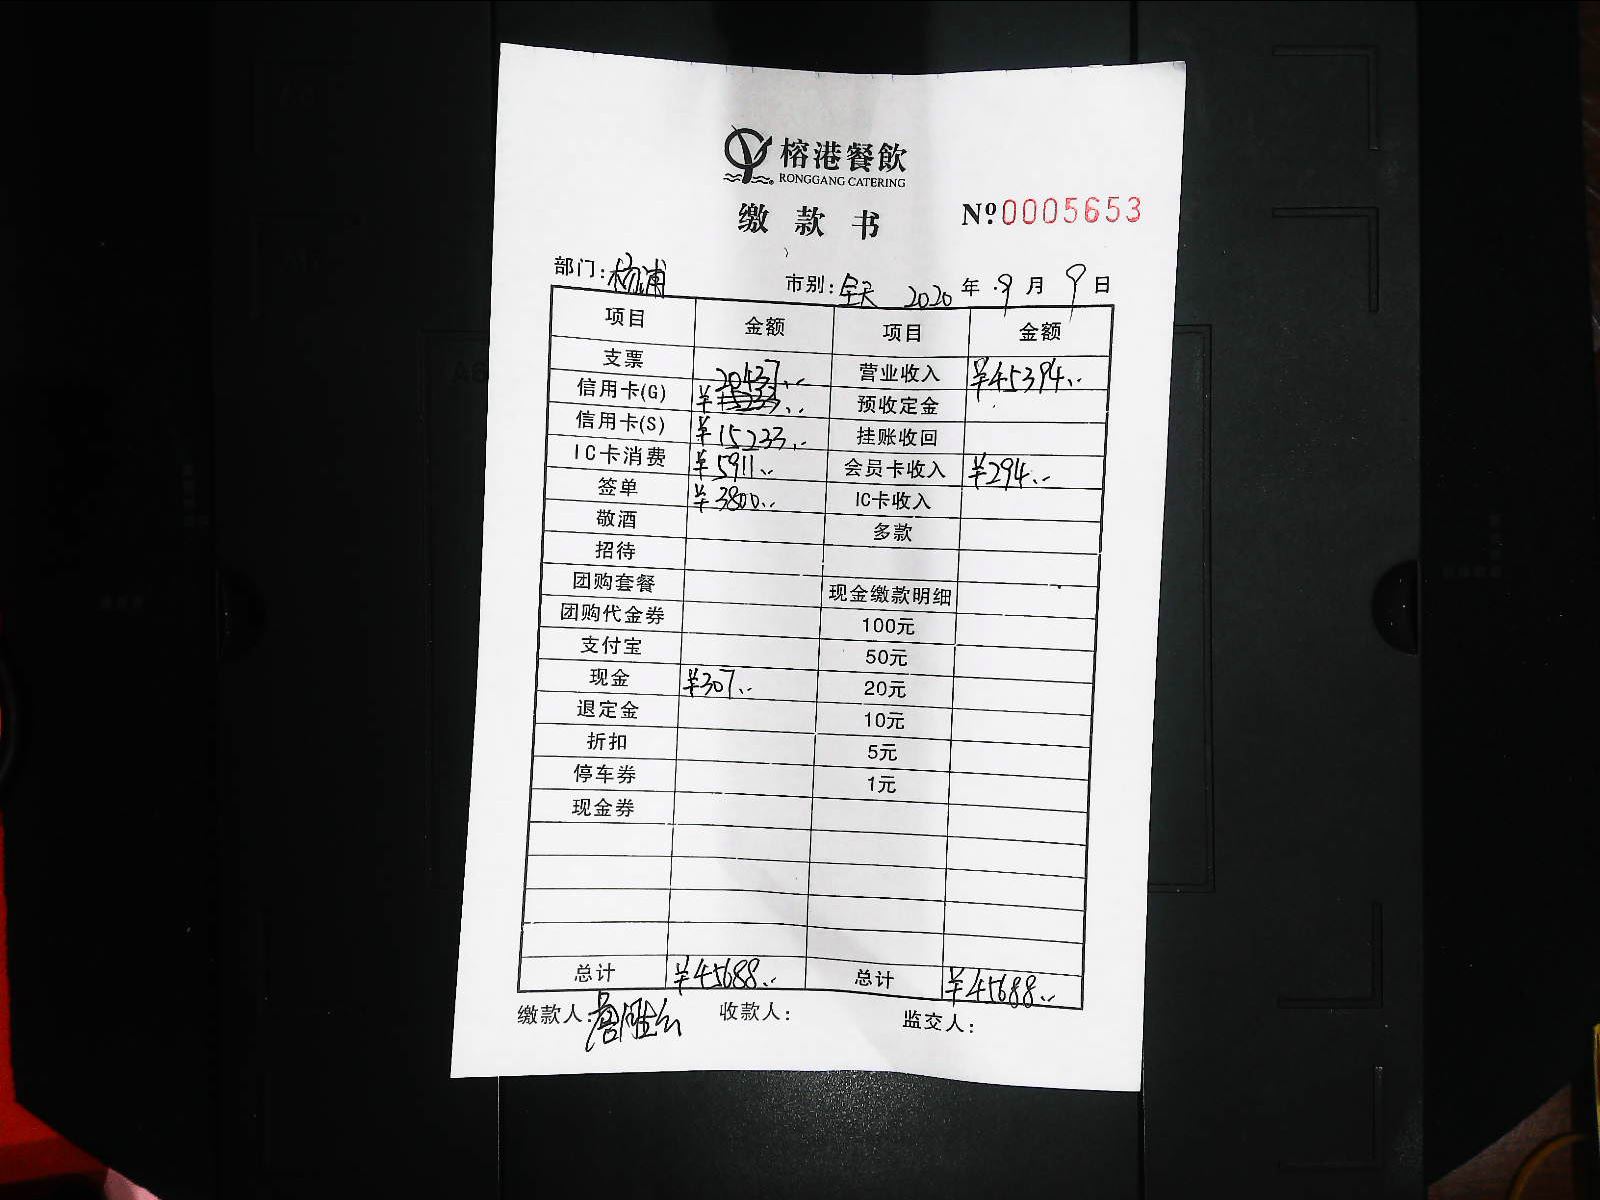 榕港餐飲
RONGGANG CATERING
缴款书
Nº0005653
部门：杨浦 市别：全天 2020年9月9日
项目 金额 项目 金额
支票 营业收入 ¥45394
信用卡(G) ¥20437 预收定金
信用卡(S) ¥15233 挂账收回
IC卡消费 ¥5911 会员卡收入 ¥294
签单 ¥3800 IC卡收入
敬酒 多款
招待
团购套餐 现金缴款明细
团购代金券 100元
支付宝 50元
现金 ¥307 20元
退定金 10元
折扣 5元
停车券 1元
现金券
总计 ¥45688 总计 ¥45688
缴款人： 收款人： 监交人：